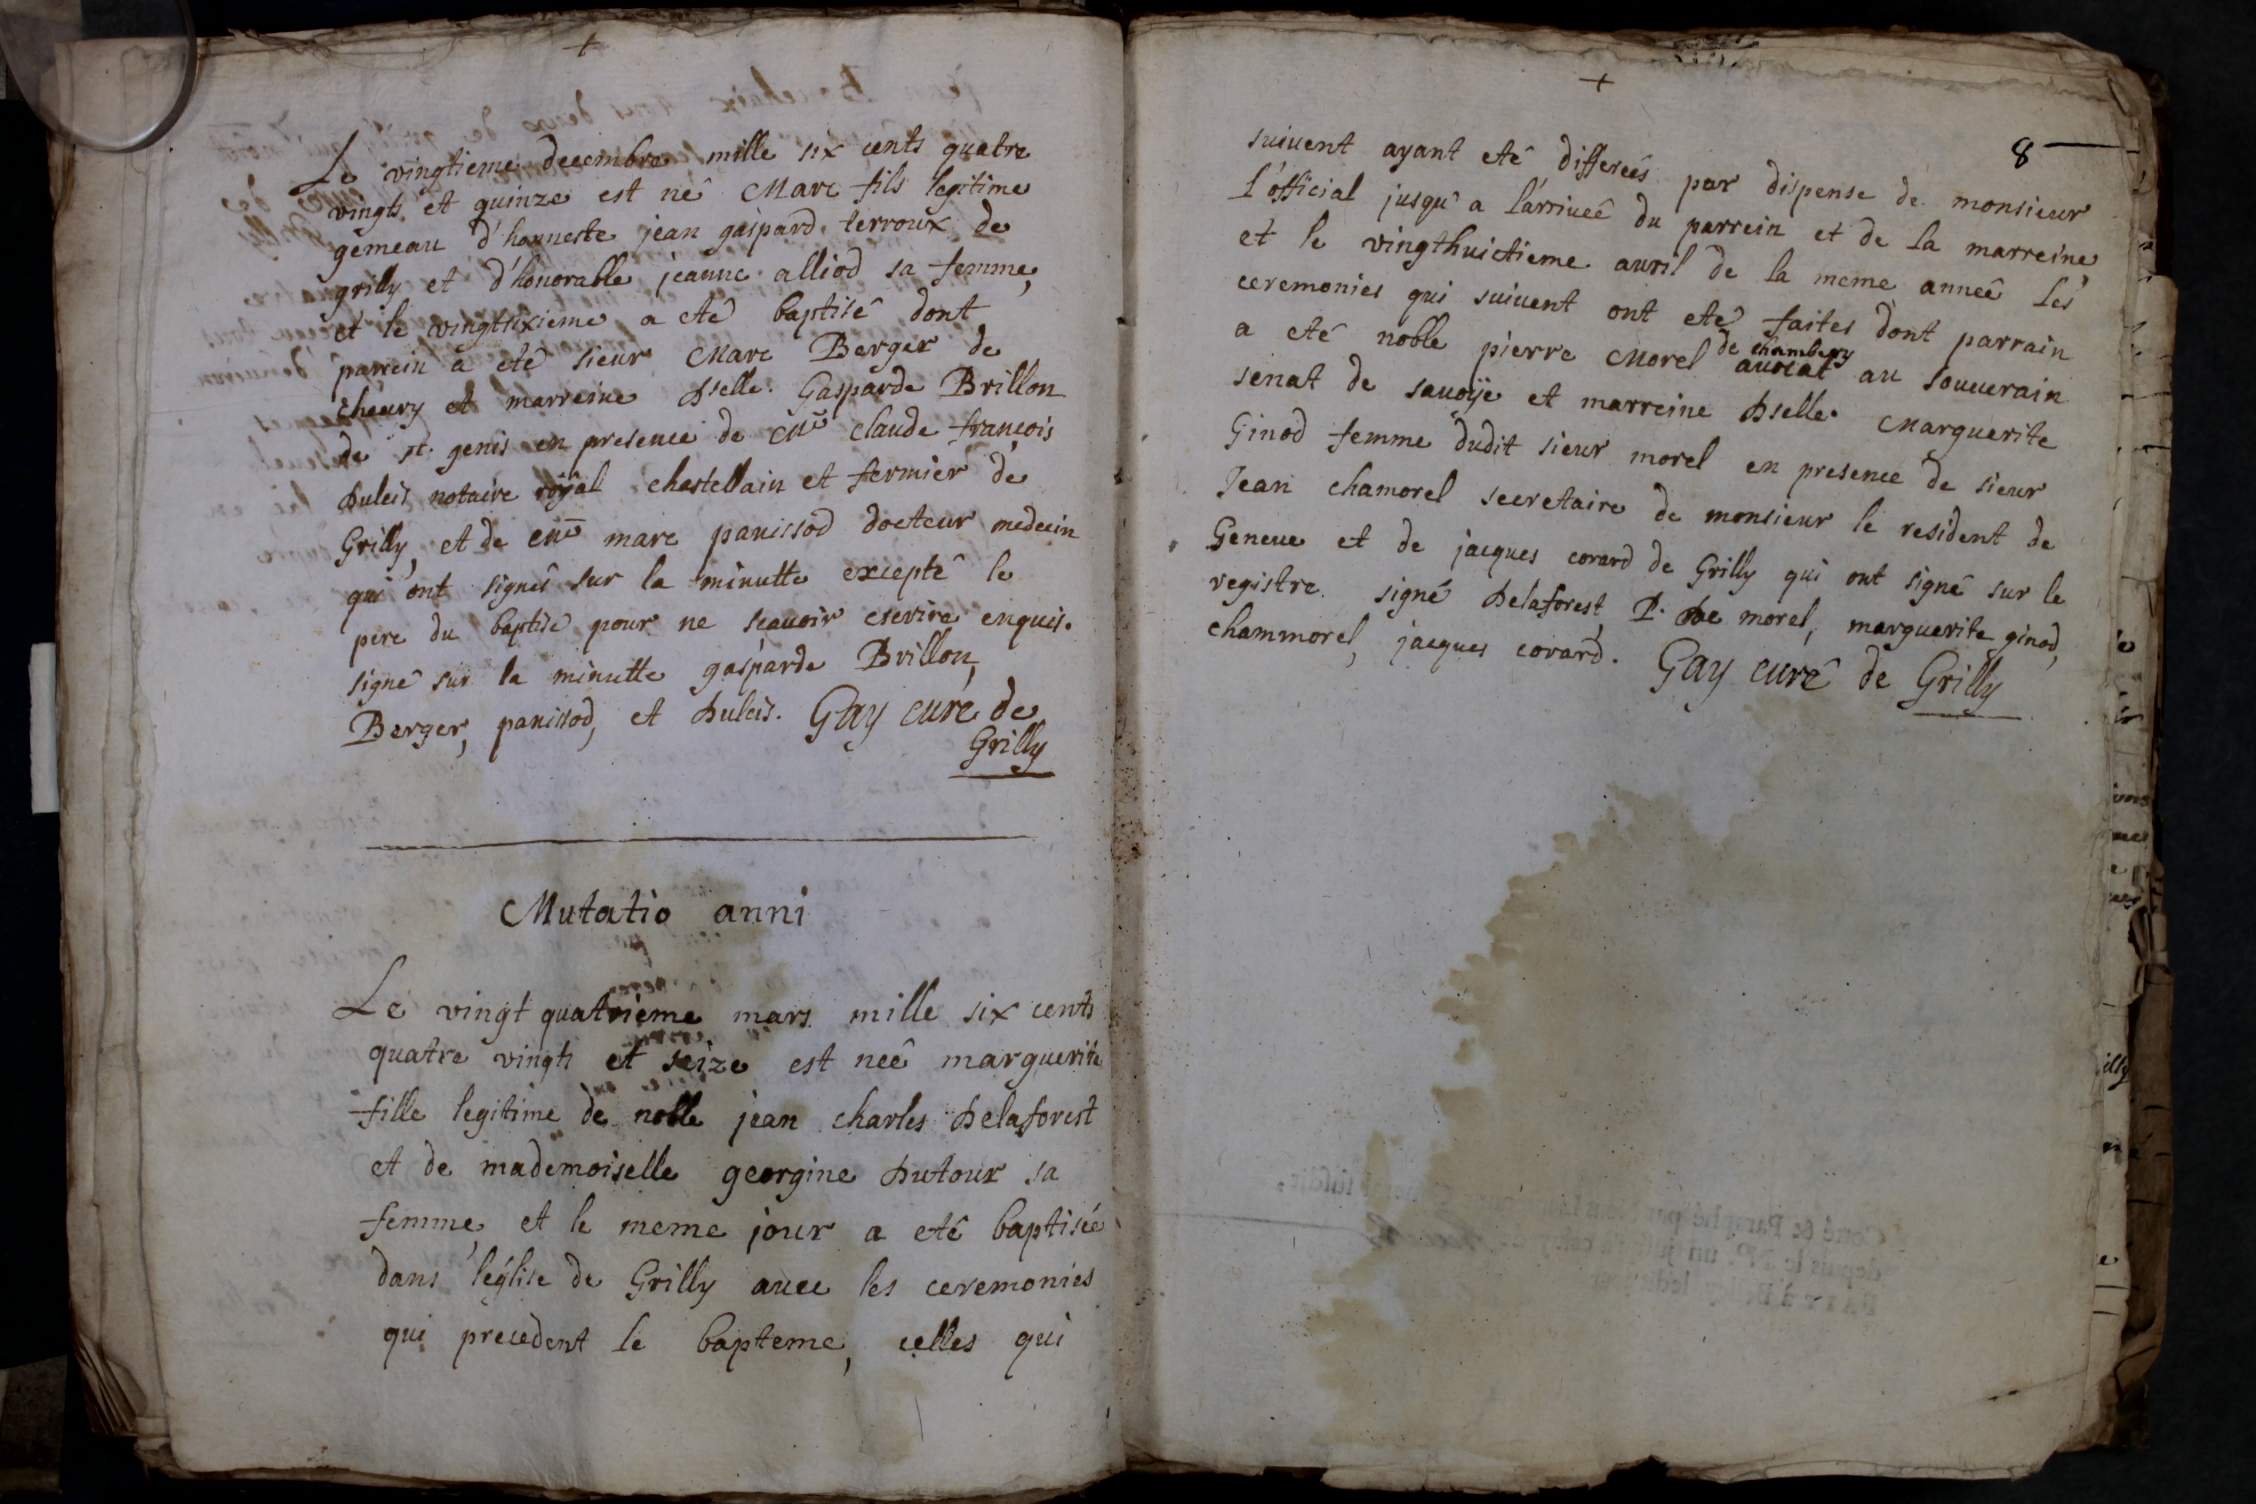 +
Le vingtieme decembre mille six cents quatre
vingts et quinze est né Marc fils legitime
gemeau d'honneste jean gaspard terroux de
grilly et d'honorable jeanne alliod sa femme,
et le vingtsixieme a eté baptisé dont
parrein a eté sieur Marc Berger de
cheury et marreine dselle. Gasparde Brillon
de st. genis en presence de me claude françois
dulcis notaire royal chastellain et fermier de
Grilly, et de me marc panissod docteur medecin
qui ont signés sur la minutte excepté le
pere du baptisé pour ne scauoir escrire enquis.
signé sur la minutte gasparde Brillon,
Berger, panissod, et dulcis. Gay curé de
Grilly
Mutatio anni
Le vingt quatrieme mars mille six cents
quatre vingts et seize est neê marguerite
fille legitime de noble jean charles delaforest
et de mademoiselle georgine dutour sa
femme, et le meme jour a eté baptisée
dans l'eglise de Grilly auec les ceremonies
qui precedent le bapteme, celles qui
+
8
suiuent ayant eté differeés par dispense de monsieur
l'official jusqu'a l'arriueê du parrein et de la marreine
et le vingthuictieme auril de la meme anneê les
ceremonies qui suiuent ont eté faites dont parrain
de chambery
a eté noble pierre Morel auocat au souuerain
senat de sauoÿe et marreine dselle. Marguerite
Ginod femme dudit sieur morel en presence de sieur
Jean chamorel secretaire de monsieur le resident de
Geneue et de jacques corard de Grilly qui ont signé sur le
registre. signé delaforest, P. de morel, marguerite ginod,
chammorel, jacques corard. Gay curé de Grilly